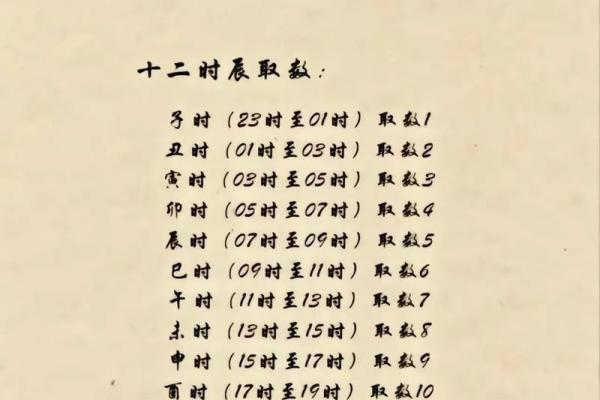 十二时辰取数:
子时(23时至01时)取数1
丑时(01时至03时)取数2
寅时(03时至05时)取数3
卯时(05时至07时)取数4
辰时(07时至09时)取数5
巳时(09时至11时)取数6
午时(11时至13时)取数7
未时(13时至15时)取数8
申时(15时至17时)取数9
酉时(17时至19时)取数10